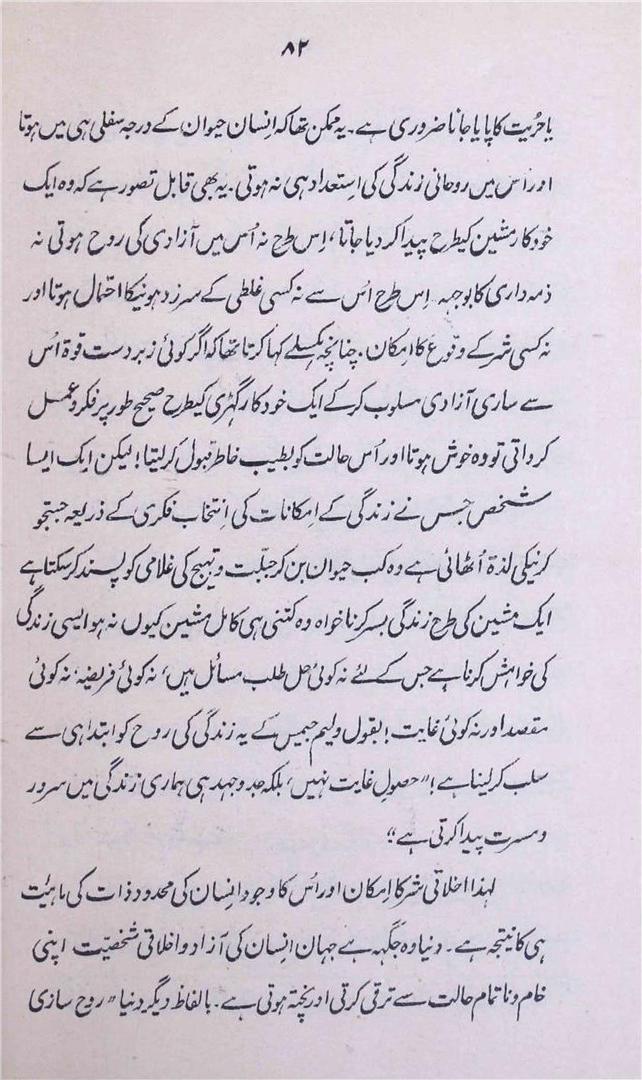 ۸۲
یا حرّیت کا پایا جانا ضروری ہے۔ یہ ممکن تھا کہ اِنسان حیوان کے درجہ سفلی ہی میں ہوتا
اور اس میں روحانی زندگی کی استعداد ہی نہ ہوتی۔ یہ بھی قابل تصور ہے کہ وہ ایک
خود کار مشین کیطرح پیدا کر دیا جاتا، اِس طرح نہ اُس میں آزادی کی روح ہوتی نہ
ذمہ داری کا بوجہہ اِس طرح اُس سے نہ کسی غلطی کے سرزد ہونیکا احتمال ہوتا اور
نہ کسی شر کے وقوع کا اِمکان۔ چنانچہ ہکسلے کہا کرتا تھا کہ اگر کوئی زبردست قوۃ اُس
سے ساری آزادی مسلوب کر کے ایک خود کار گہڑی کیطرح صحیح طور پر فکر و عمل
کرداتی تو وہ خوش ہوتا اور اُس حالت کو بطیب خاطر قبول کر لیتا! لیکن ایک ایسا
شخص جس نے زندگی کے اِمکانات کی اِنتخاب فکری کے ذریعہ جستجو
کرنیکی لذۃ اُٹھائی ہے وہ کب حیوان بن کر جبلّت و تہیج کی غلامی کو پسند کر سکتا ہے
ایک مشین کی طرح زندگی بسر کرنا خواہ وہ کتنی ہی کامل مشین کیوں نہ ہو ایسی زندگی
کی خواہش کرنا ہے جس کے لئے نہ کوئی حل طلب مسائل ہیں، نہ کوئی فریضہ، نہ کوئی
مقصد اور نہ کوئی غایت! بقول ولیم جیمس کے یہ زندگی کی روح کو ابتدا ہی سے
سلب کر لینا ہے! "حصول غایت نہیں، بلکہ جدوجہد ہی ہماری زندگی میں سرور
و مسرت پیدا کرتی ہے"
لہذا اخلاقی شر کا اِمکان اور اُس کا وجود اِنسان کی محدود ذات کی ماہیّت
ہی کا نتیجہ ہے۔ دنیا وہ جگہہ ہے جہان انسان کی آزاد و اخلاقی شخصیّت اپنی
خام و ناتمام حالت سے ترقی کرتی اور پختہ ہوتی ہے۔ بالفاظ دیگر دنیا "روح سازی